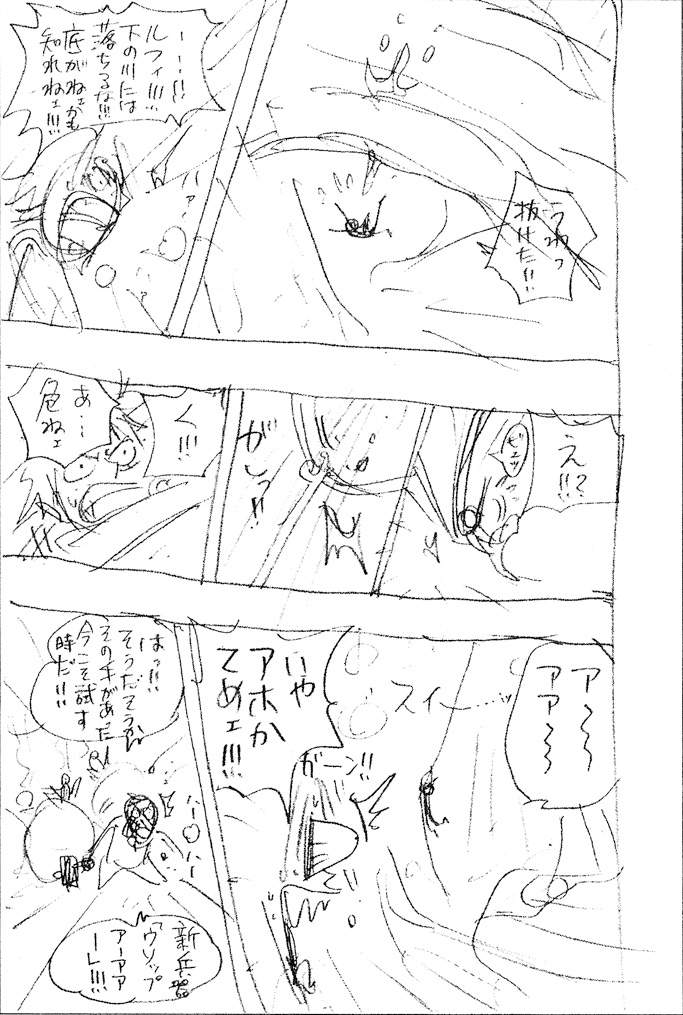 うわっ
抜けた!!
ーー!!
ルフィ!!!
下の川には
落ちるな!!!
底がねェかも
知れねェ!!!
ハァ
え!!?
ビュッ
がしっ!!
く!!!
あ…
危ねェ
ア〜〜
アア〜〜
スイー……ッ
ガーン!!
いや
アホか
てめェ!!!
はっ!!
そうだそうか
その手があった!
今こそ試す
時だ!!!
ハー
ハー
新兵器
「ウソップ
アーアア
ーレ!!!